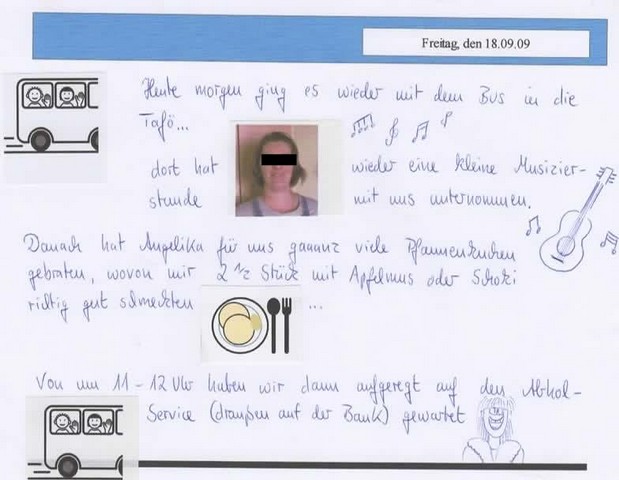 Freitag, den 18.09.09
Heute morgen ging es wieder mit dem Bus in die
Tafö...
dort hat wieder eine kleine Musizier-
stunde mit uns unternommen.
Danach hat Angelika für uns gaaanz viele Pfannenkuchen
gebraten, wovon mir 2 1/2 Stück mit Apfelmus oder Schoki
richtig gut schmeckten ...
Von um 11 - 12 Uhr haben wir dann aufgeregt auf den Abhol-
Service (draußen auf der Bank) gewartet